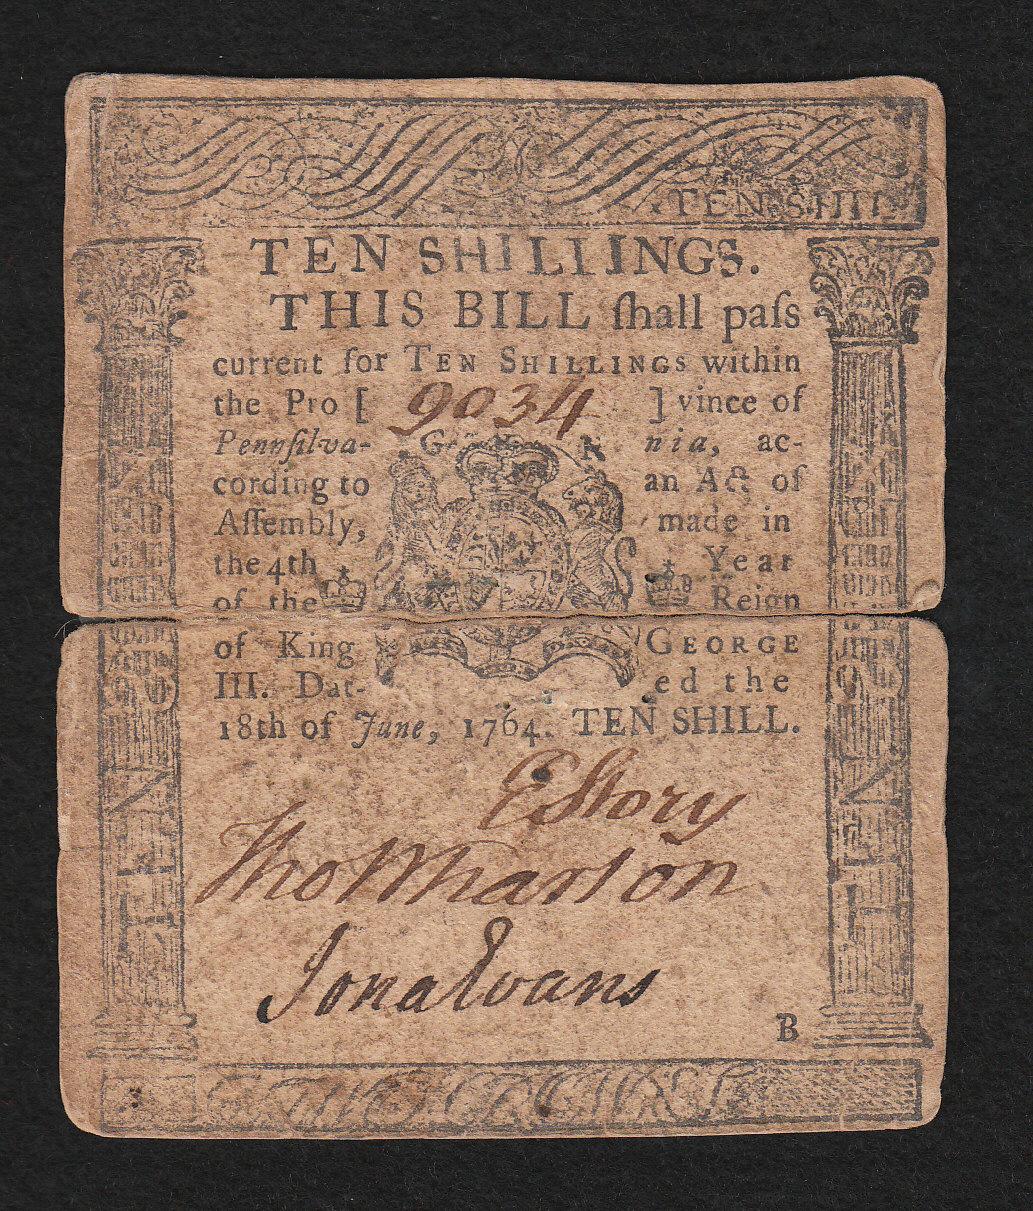 TEN SHILL
TEN SHILLINGS.
THIS BILL ſhall paſs
current for TEN SHILLINGS within
the Pro [ 9034 ] vince of
Pennſilva- G R nia, ac-
cording to an Act of
Aſſembly, made in
the 4th Year
of the Reign
of King GEORGE
III. Dat- ed the
18th of June, 1764. TEN SHILL.
E Story
Tho Wharton
Jona Evans
B
TEN S
TEN S